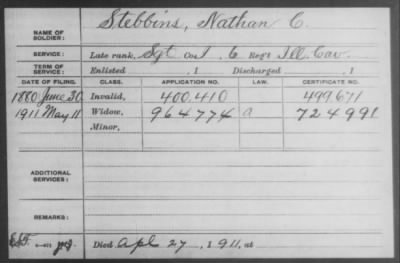 Stebbins, Nathan C.
NAME OF SOLDIER:
SERVICE: Late rank, Sgt Co. I, 6 Reg't Ill. Cav.
TERM OF SERVICE: Enlisted , 1 Discharged , 1
DATE OF FILING. CLASS. APPLICATION NO. LAW. CERTIFICATE NO.
1880 June 30 Invalid, 400.410 499.671
1911 May 11 Widow, 964774 a 724991
Minor,
ADDITIONAL SERVICES:
REMARKS:
Died Apl 27, 1911, at